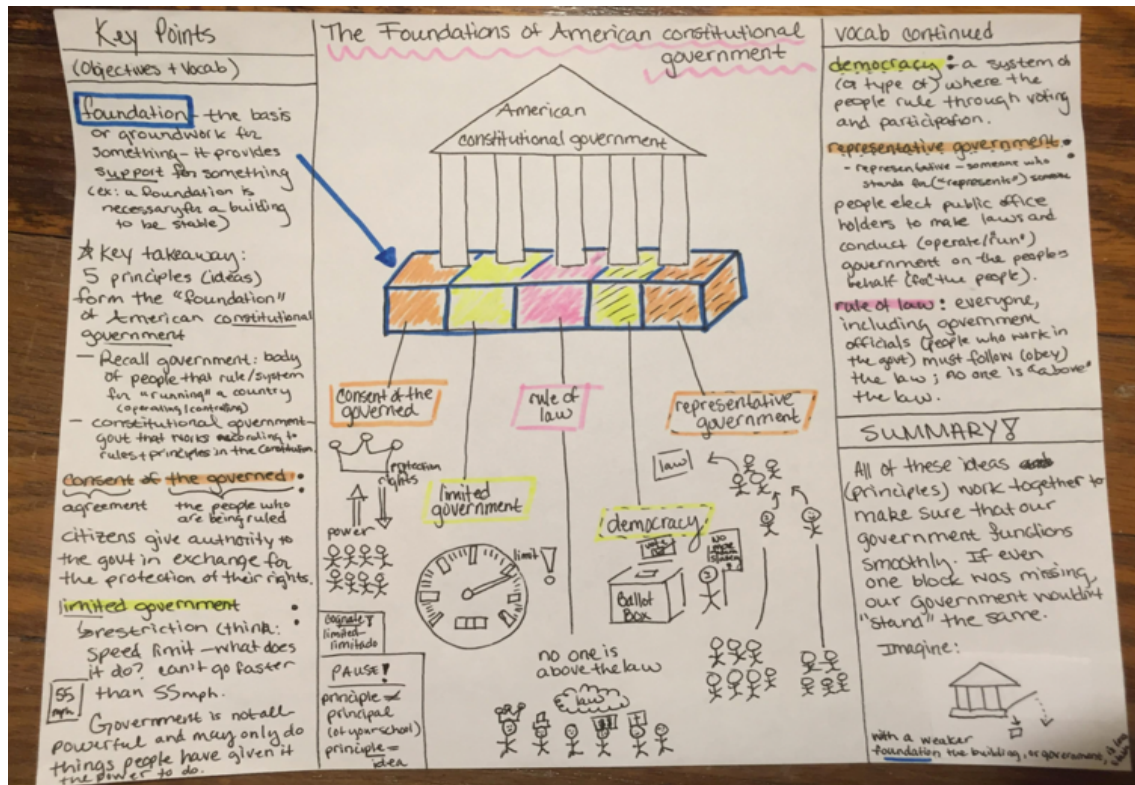 Key Points
(Objectives + Vocab)
foundation - the basis
or groundwork for
something - it provides
support for something
(ex: a foundation is
necessary for a building
to be stable)
☆ Key takeaway:
5 principles (ideas)
form the "foundation"
of American constitutional
government
- Recall government: body
of people that rule/system
for "running" a country
(operating/controlling)
- constitutional government -
govt that works according to
rules + principles in the Constitution
consent of the governed:
agreement the people who
are being ruled
citizens give authority to
the govt in exchange for
the protection of their rights.
limited government:
restriction (think:
speed limit - what does
it do? can't go faster
than 55mph.
55
mph
Government is not all-
powerful and may only do
things people have given it
the power to do.
The Foundations of American constitutional
government
American
constitutional government
consent of the
governed
rule of
law
representative
government
limited
government
democracy
protection
rights
power
limit!
law
vote
Ballot
Box
cognate!
limited-
limitado
PAUSE!
principle ≠
principal
(of your school)
principle =
idea
no one is
above the law
law
vocab continued
democracy: a system of
(or type of) where the
people rule through voting
and participation.
representative government:
- representative - someone who
stands for ("represents") someone
people elect public office
holders to make laws and
conduct (operate/"run")
government on the people's
behalf ("for" the people).
rule of law: everyone,
including government
officials (people who work in
the govt) must follow (obey)
the law; no one is "above"
the law.
SUMMARY!
All of these ideas
(principles) work together to
make sure that our
government functions
smoothly. If even
one block was missing,
our government wouldn't
"stand" the same.
Imagine:
with a weaker
foundation the building, or government,